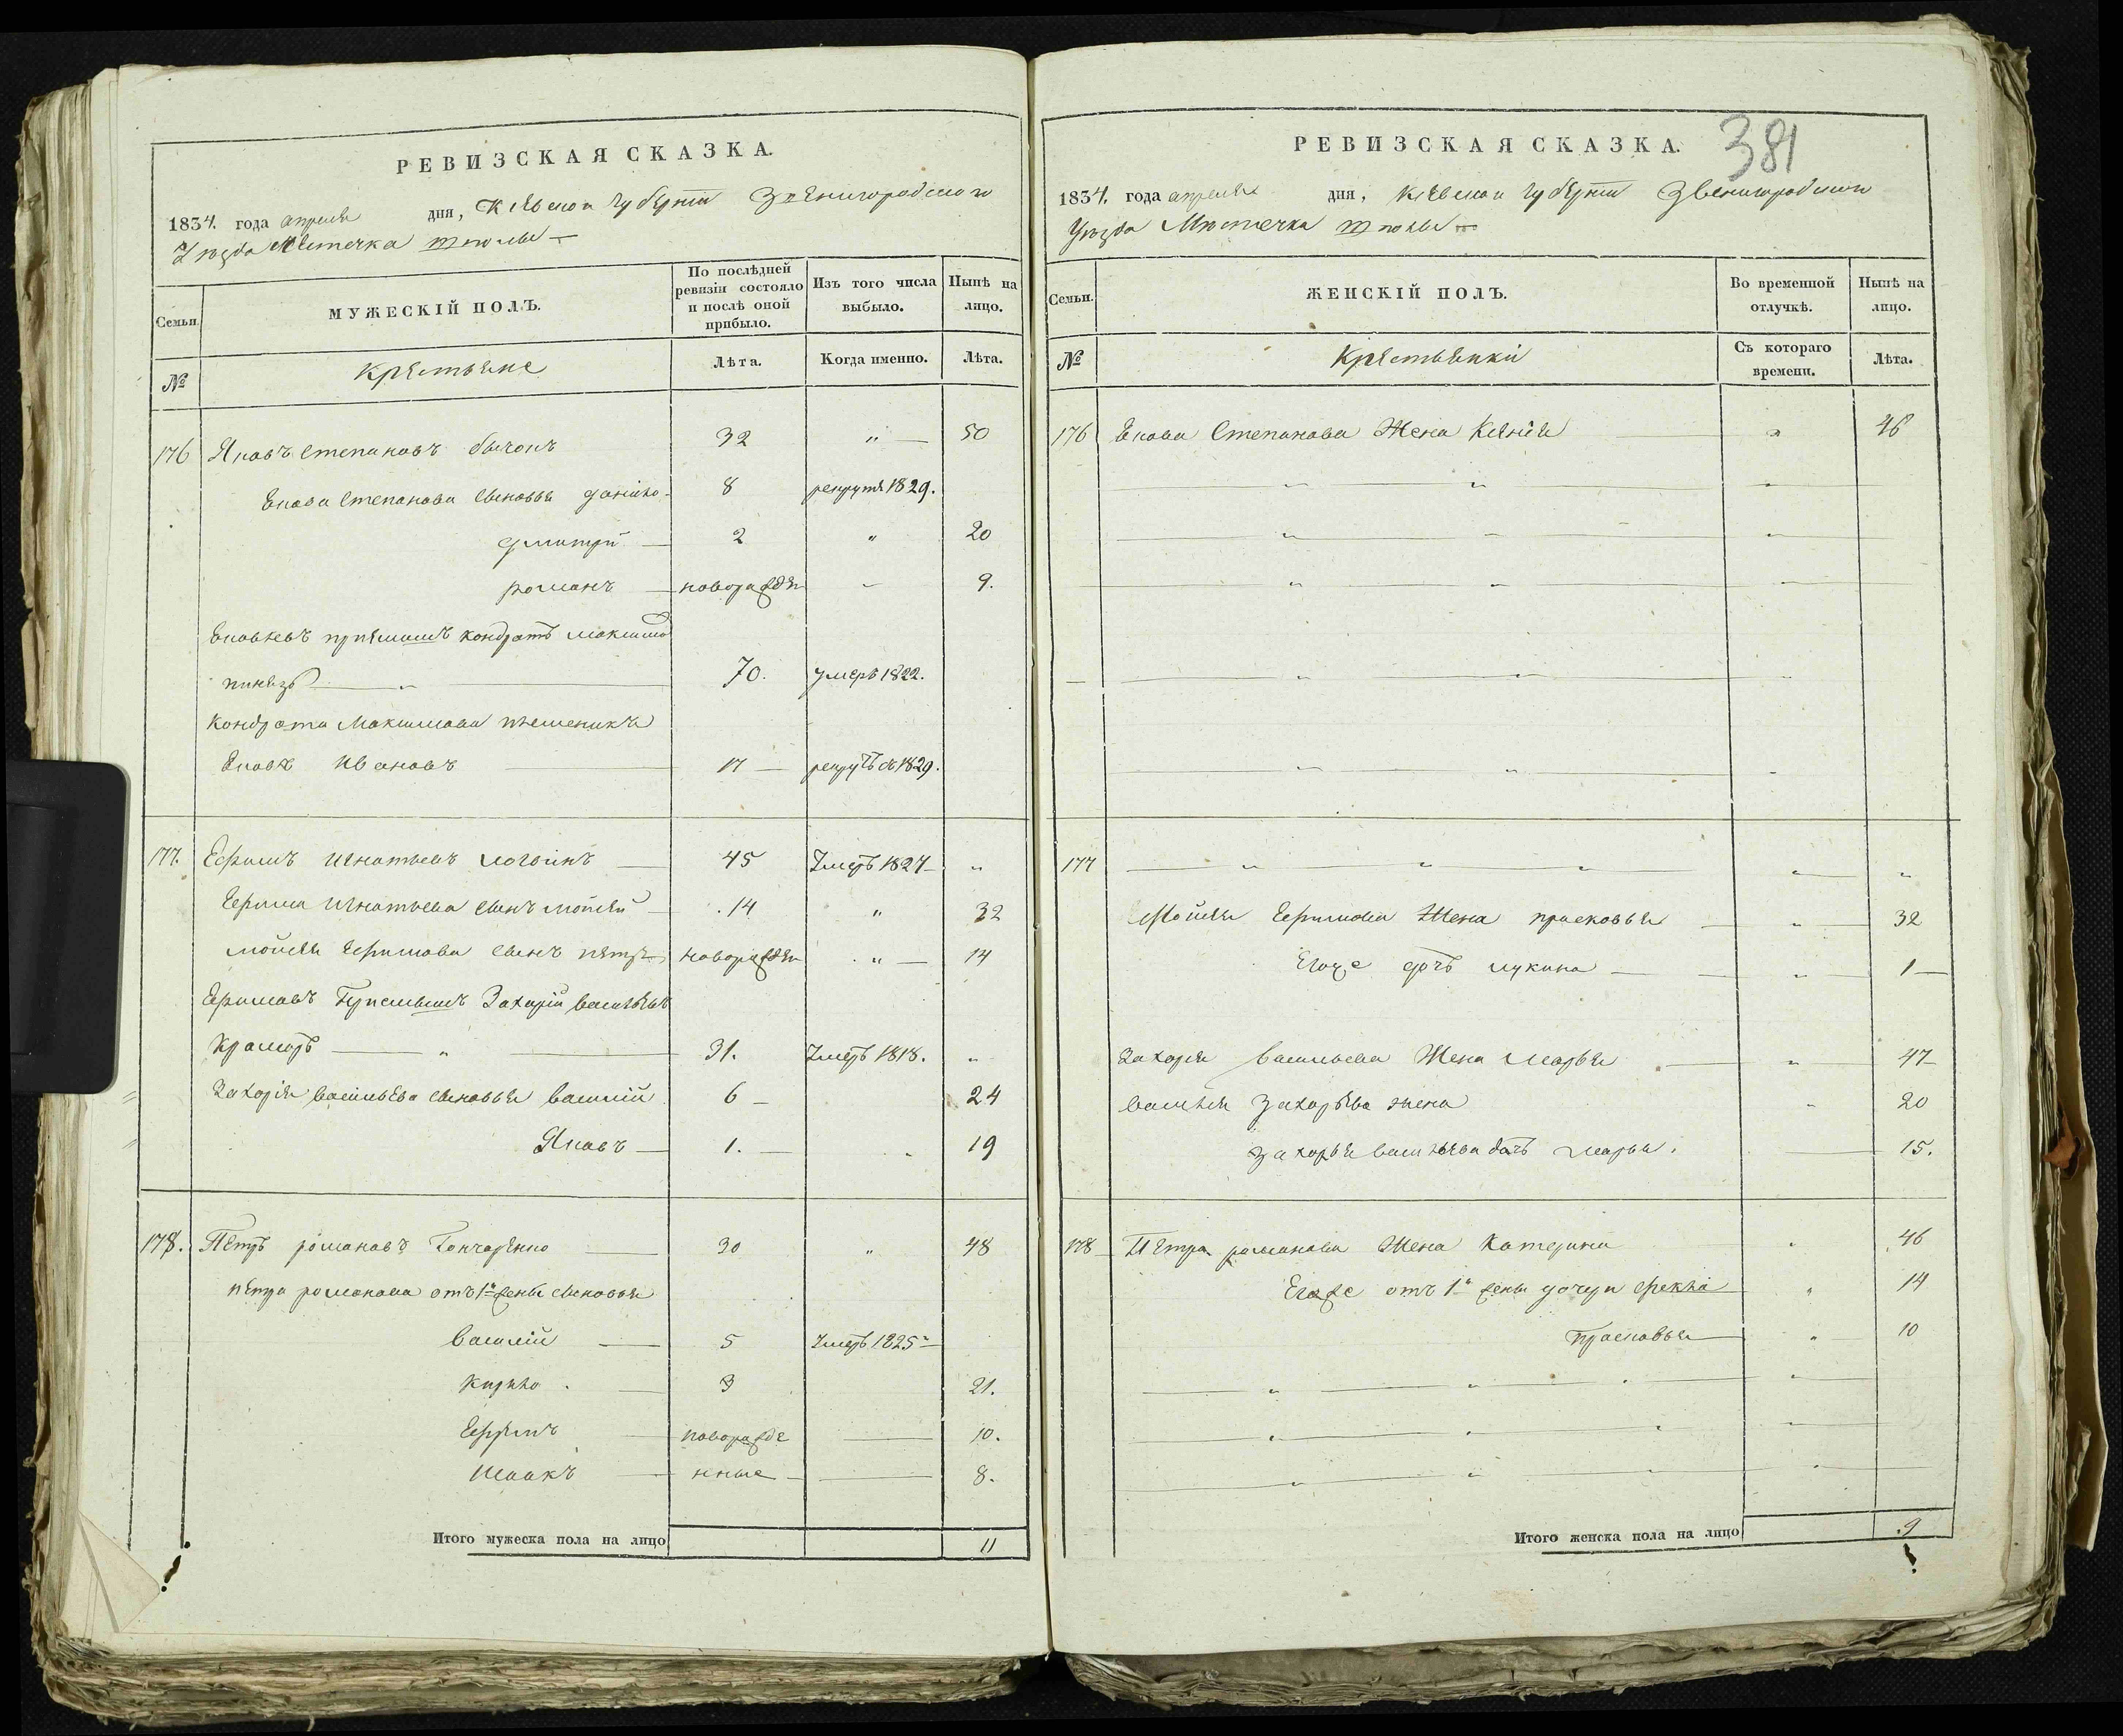 РЕВИЗСКАЯ СКАЗКА.
1834. года апреля дня, Киевской губернии Звенигородского
Уѣзда Местечка Тполы
Семьи. МУЖЕСКІЙ ПОЛЪ. По послѣдней ревизіи состояло и послѣ оной прибыло. Изъ того числа выбыло. Нынѣ на лицо.
№ Крестьяне Лѣта. Когда именно. Лѣта.
176 Яковъ Степановъ бычокъ 32 " 50
Екова Степанова сыновья данило 8 рекрутъ 1829.
дмитрй 2 " 20
романъ новорожден " 9.
Ековлевъ приемышъ кондратъ максимо
70. умеръ 1822.
Кондрата Максимова племеникъ
Яковъ Ивановъ 17 рекрутъ въ 1829.
177. Ефимъ Игнатьевъ 45 Умеръ 1827 "
Ефима Игнатьева сынъ мойсей 14 " 32
мойсея Ефимова сынъ петръ новорожден " 14
Ефимовъ Приемышъ Захарій васильевъ
Крамаръ " 31. Умеръ 1818. "
Захарія васильева сыновья василій 6 24
Яковъ 1. 19
178. Петръ романовъ Гончаренко 30 " 48
петра романова отъ 1й жены сыновья
василій 5 Умеръ 1825
Кирило 3 21.
Ефримъ новорожде 10.
Исаакъ нные 8.
Итого мужеска пола на лицо 11
РЕВИЗСКАЯ СКАЗКА. 381
1834. года апреля дня, Киевской губернии Звенигородского
Уѣзда Мѣстечка Тполы
Семьи. ЖЕНСКІЙ ПОЛЪ. Во временной отлучкѣ. Нынѣ на лицо.
№ Крестьянки Съ котораго времени. Лѣта.
176 Екова Степанова Жена Ксения " 46
177 " " " " "
Мойсея Ефимова Жена прасковья " 32
Егоже дочъ лукина " 1
Захарія васильева Жена марья " 47
василия Захарьева жена " 20
Захарья васильева дочъ марья. 15.
178 Петра романова Жена Катерина " 46
Егоже отъ 1й жены дочери фекла " 14
Прасковья " 10
Итого женска пола на лицо 9